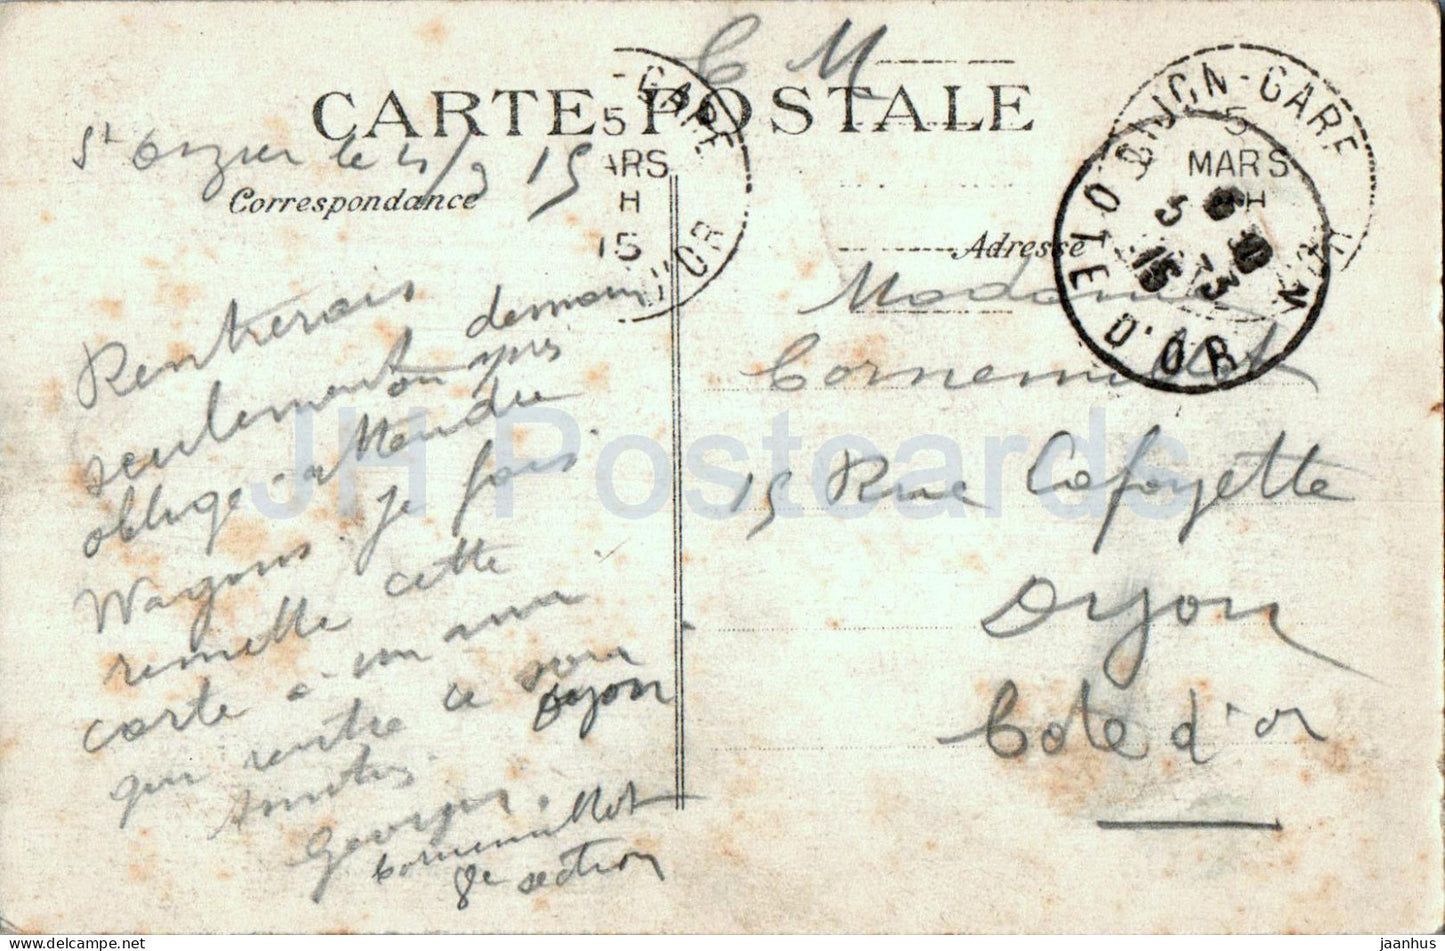 C M
CARTE POSTALE
St Dizier le 4/3 15
Correspondance
Adresse
DIJON-GARE
5
MARS
H
15
D'OR
DIJON-GARE
5
MARS
H
COTE D'OR
5 3
15
Rentrerais
seulement demain
on
oblige attendre
Wagons. je fais
remettre cette
carte à un ami
qui rentre ce soir
Dijon
Amitiés.
Georges.
Cornemillot
8e section
Madame
Cornemillot
15 Rue Lafayette
Dijon
Cote d'or
JH Postcards
delcampe.net
jaanhus